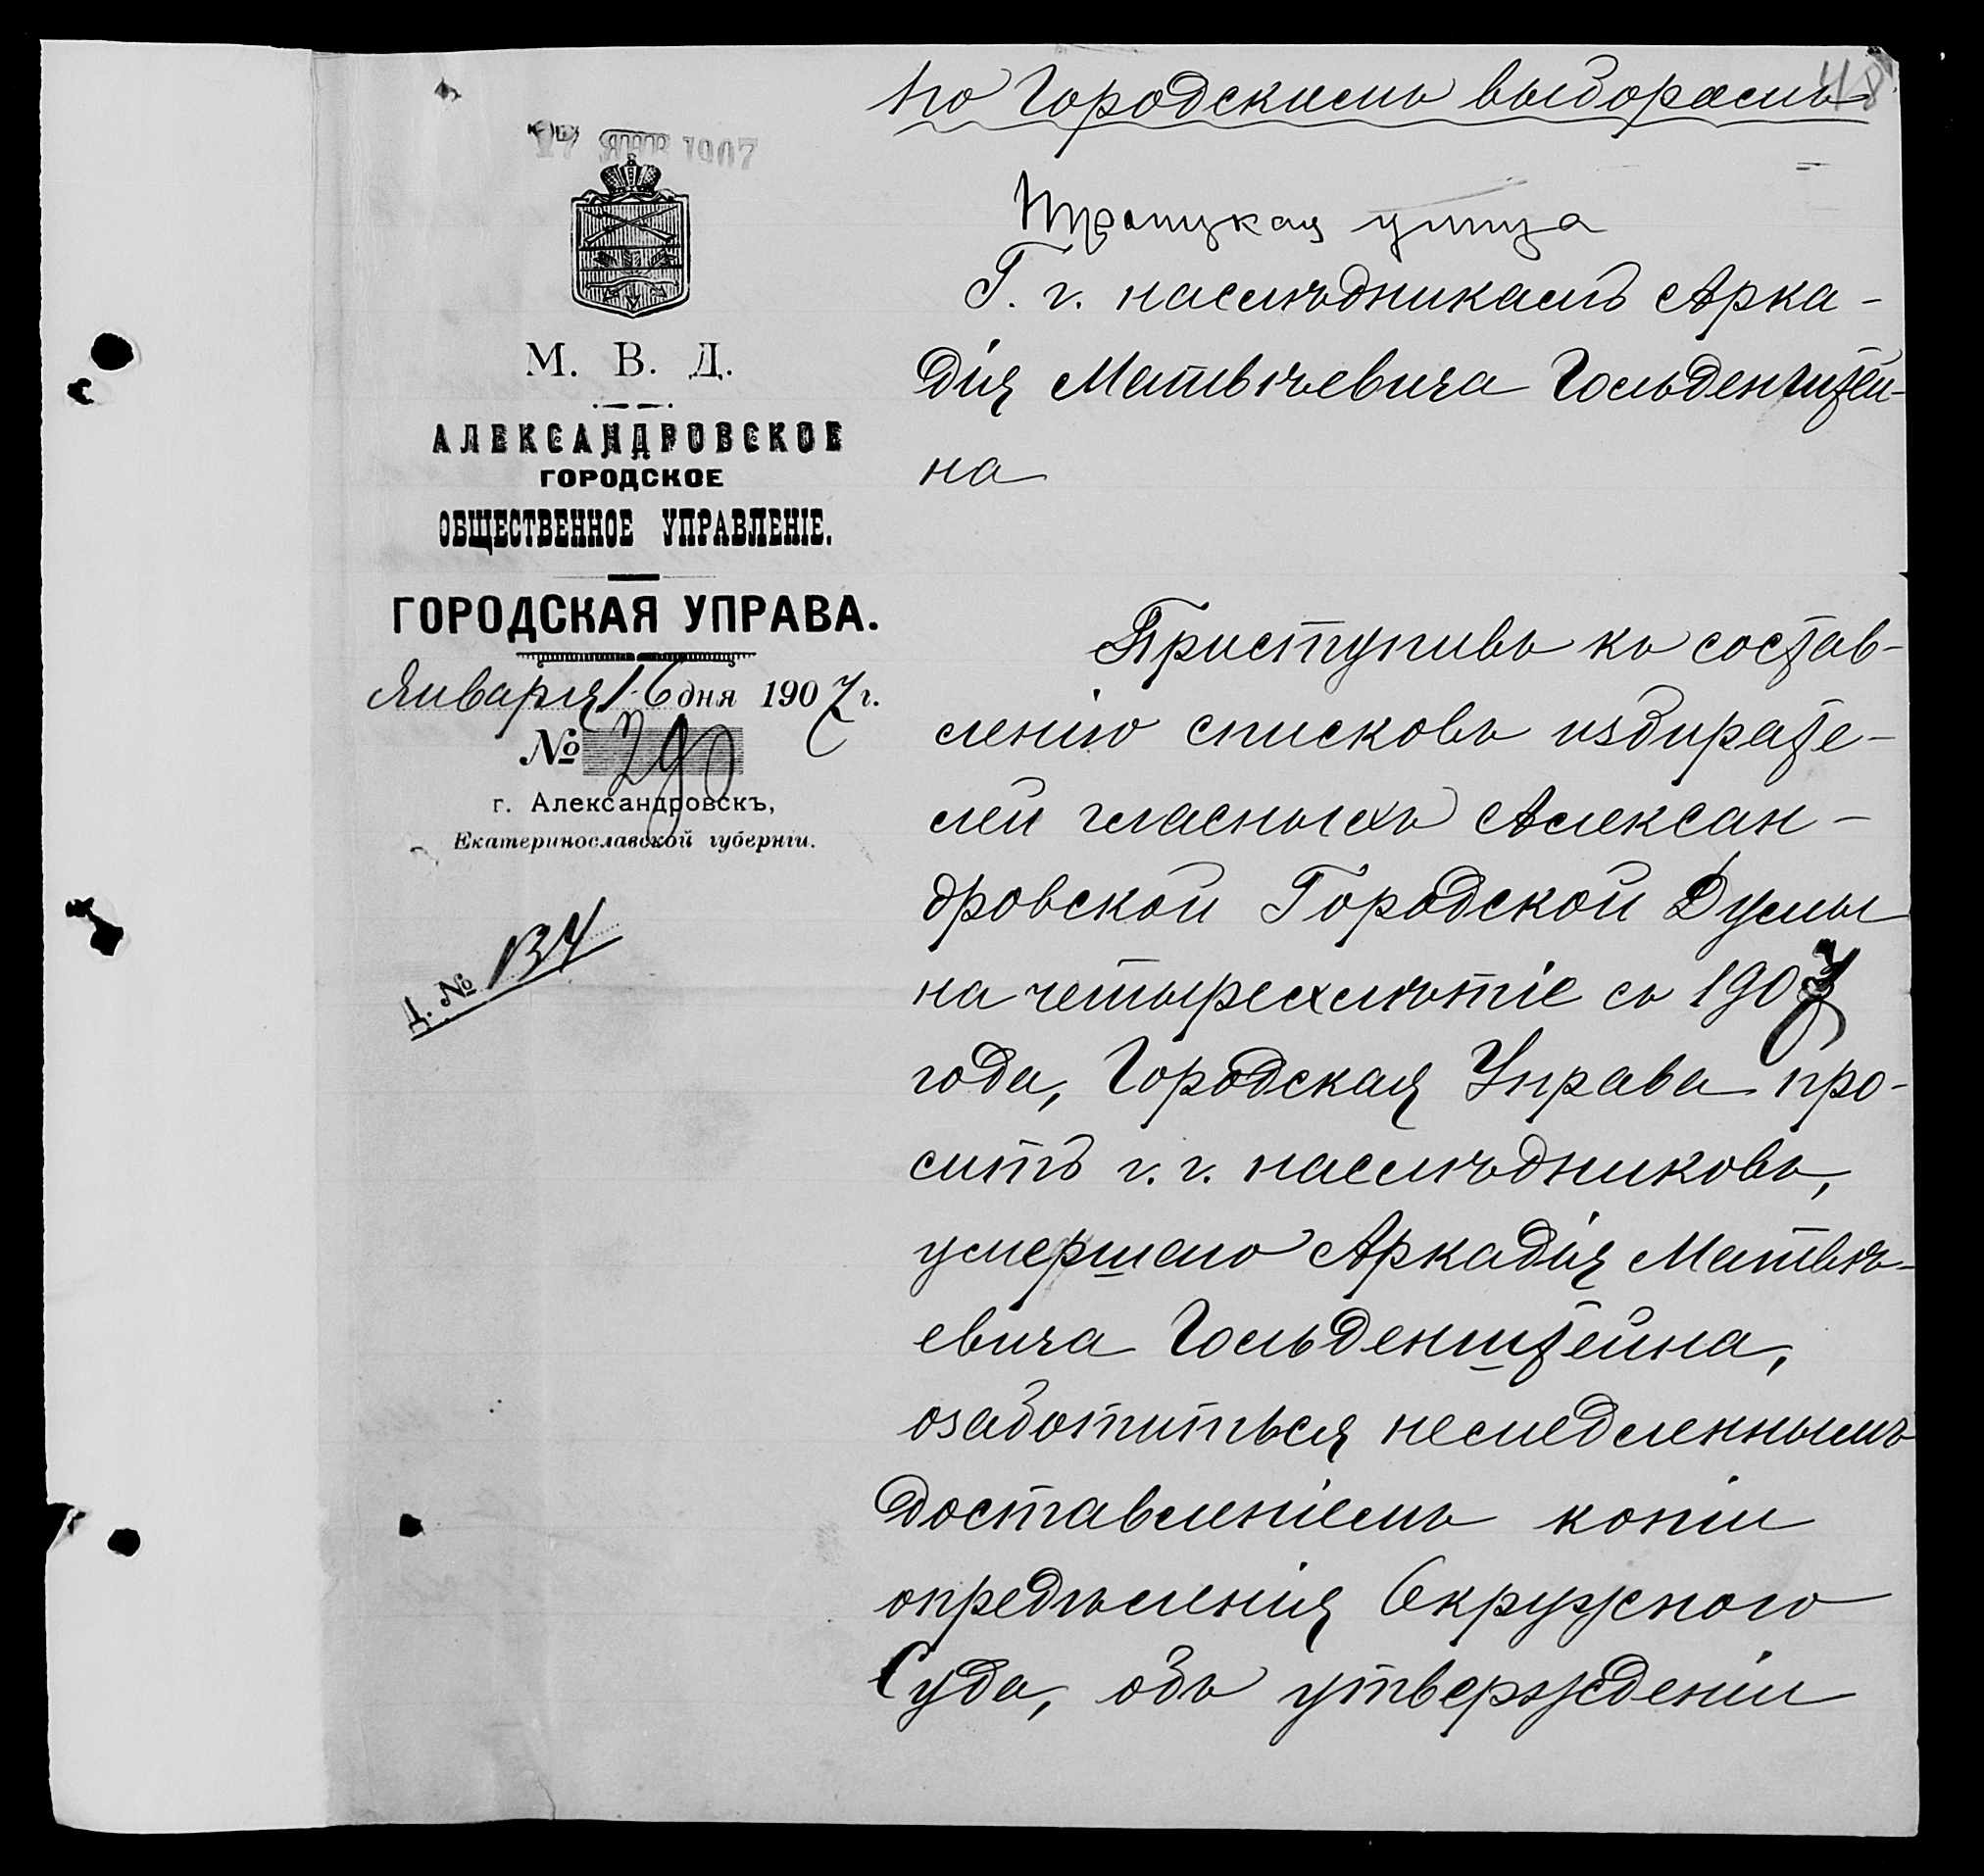 По Городскимъ выборамъ
48
17 ЯНВ 1907
Троицкая улица
М. В. Д.
АЛЕКСАНДРОВСКОЕ
ГОРОДСКОЕ
ОБЩЕСТВЕННОЕ УПРАВЛЕНІЕ.
ГОРОДСКАЯ УПРАВА.
Января 16 дня 1907 г.
№ 290
г. Александровскъ,
Екатеринославской губерніи.
Д. № 134
Г. г. наслѣдникамъ Арка-
дія Матвѣевича Гольденштей-
на
Приступивъ къ состав-
ленію списковъ избирате-
лей гласныхъ Алексан-
дровской Городской Думы
на четырехлѣтіе съ 1907
года, Городская Управа про-
ситъ г. г. наслѣдниковъ,
умершаго Аркадія Матвѣ-
евича Гольденштейна,
озаботиться немедленнымъ
доставленіемъ копіи
опредѣленія Окружного
Суда, объ утвержденіи